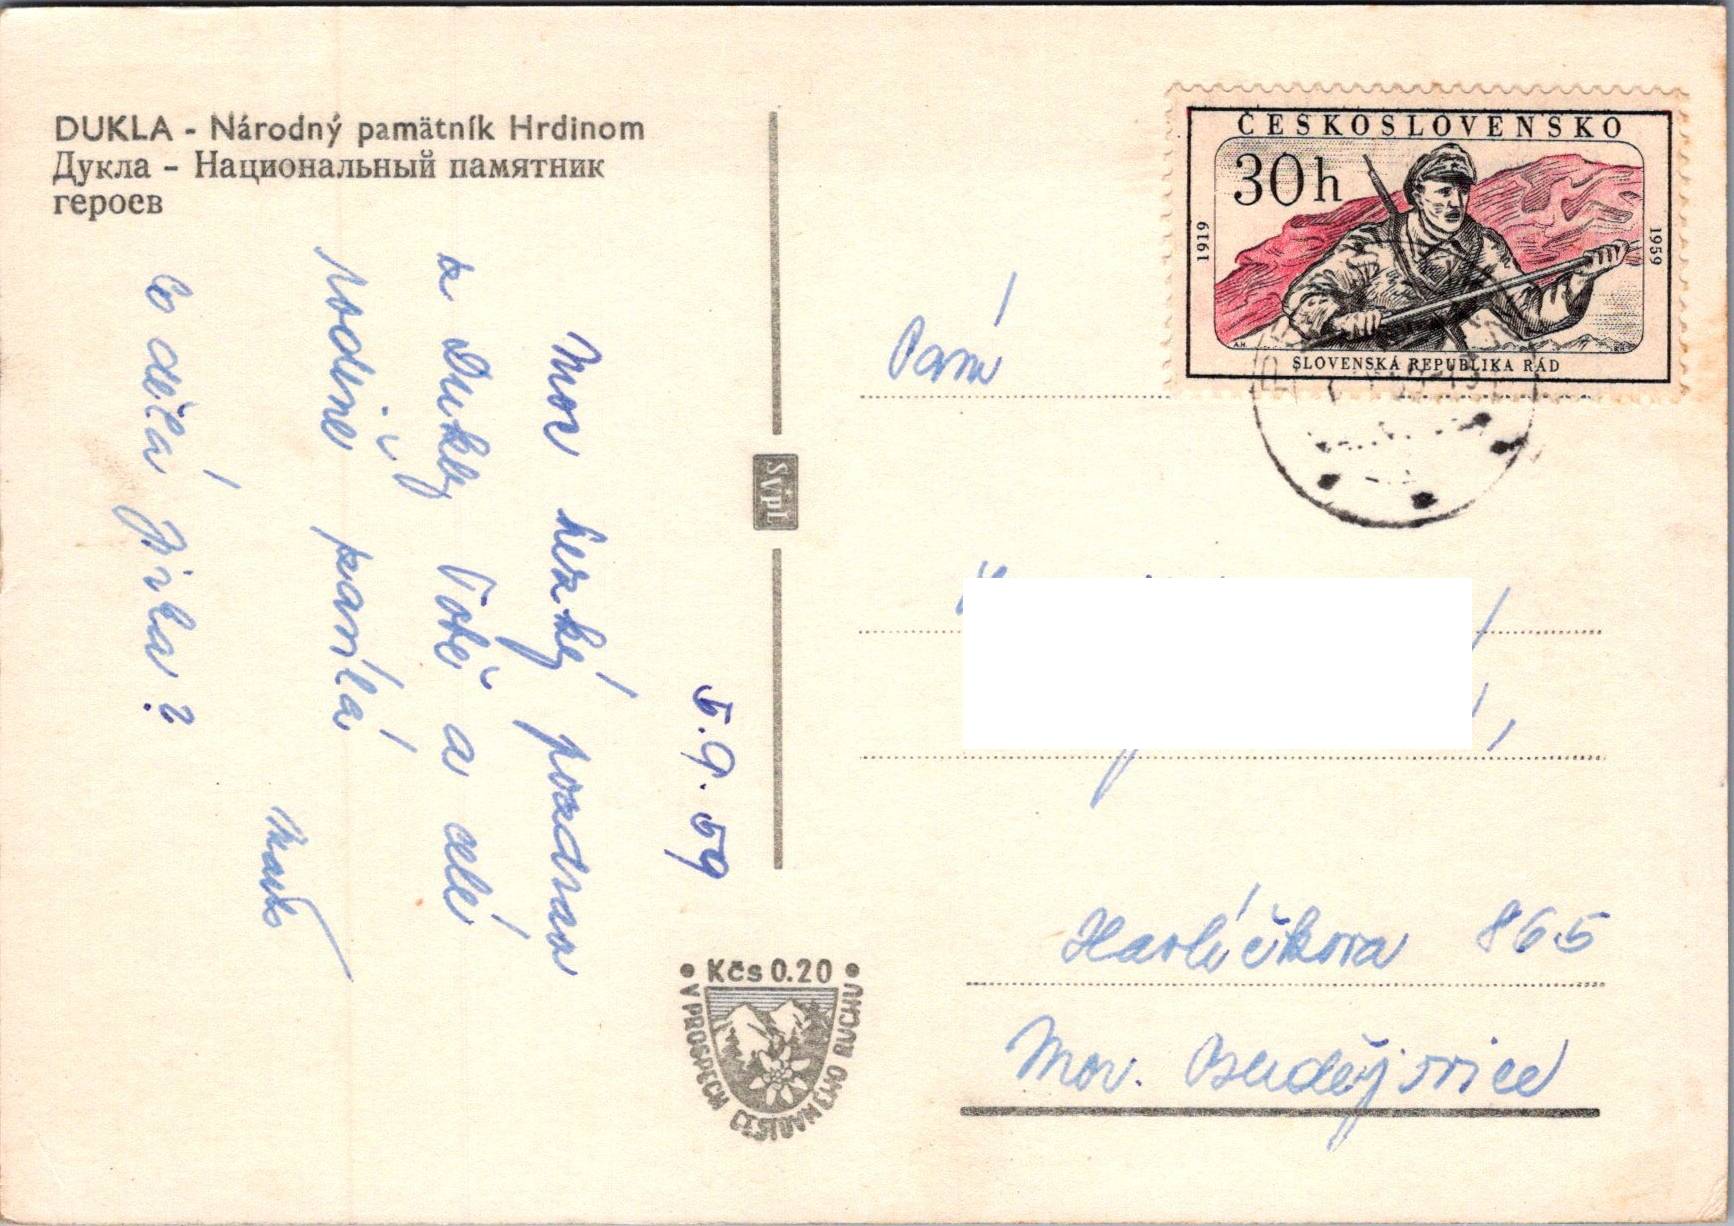 DUKLA - Národný pamätník Hrdinom
Дукла - Национальный памятник
героев
5.9.59
Moc hezký pozdrav
z Dukly Tobě a celé
rodině posílá
Co dělá Jirka?
SVPL
Kčs 0.20
V PROSPECH CESTOVNÉHO RUCHU
ČESKOSLOVENSKO
30h
1919
1959
SLOVENSKÁ REPUBLIKA RÁD
Paní
Havlíčkova 865
Mor. Budějovice